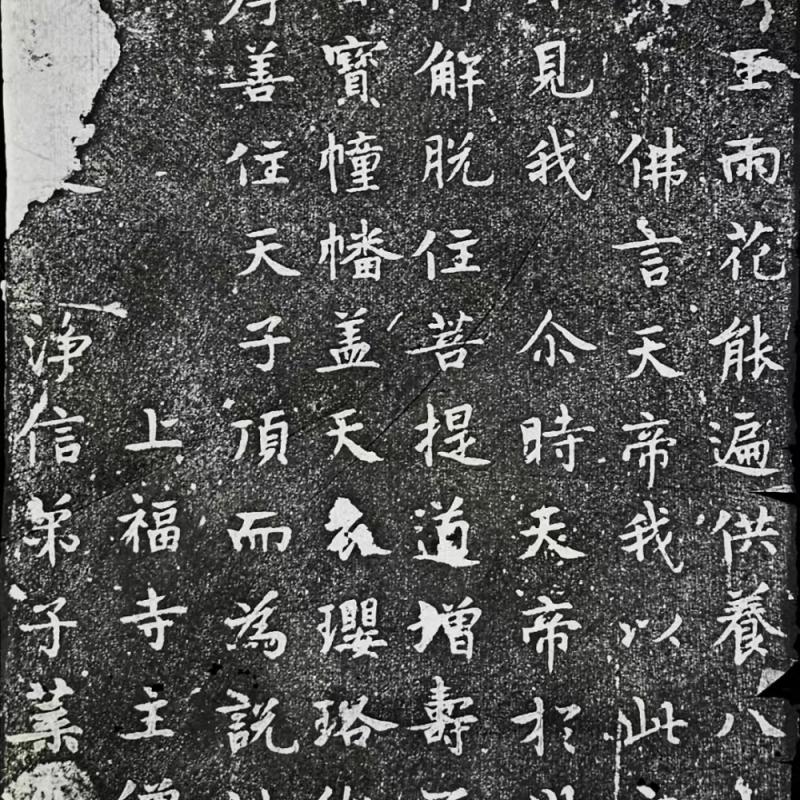 王雨花能遍供養八
佛言天帝我以此
見我 尒時天帝於
解脱住菩提道增壽
寶幢幡盖天衣瓔珞
善住天子頂而為説
上福寺主僧
淨信弟子葉